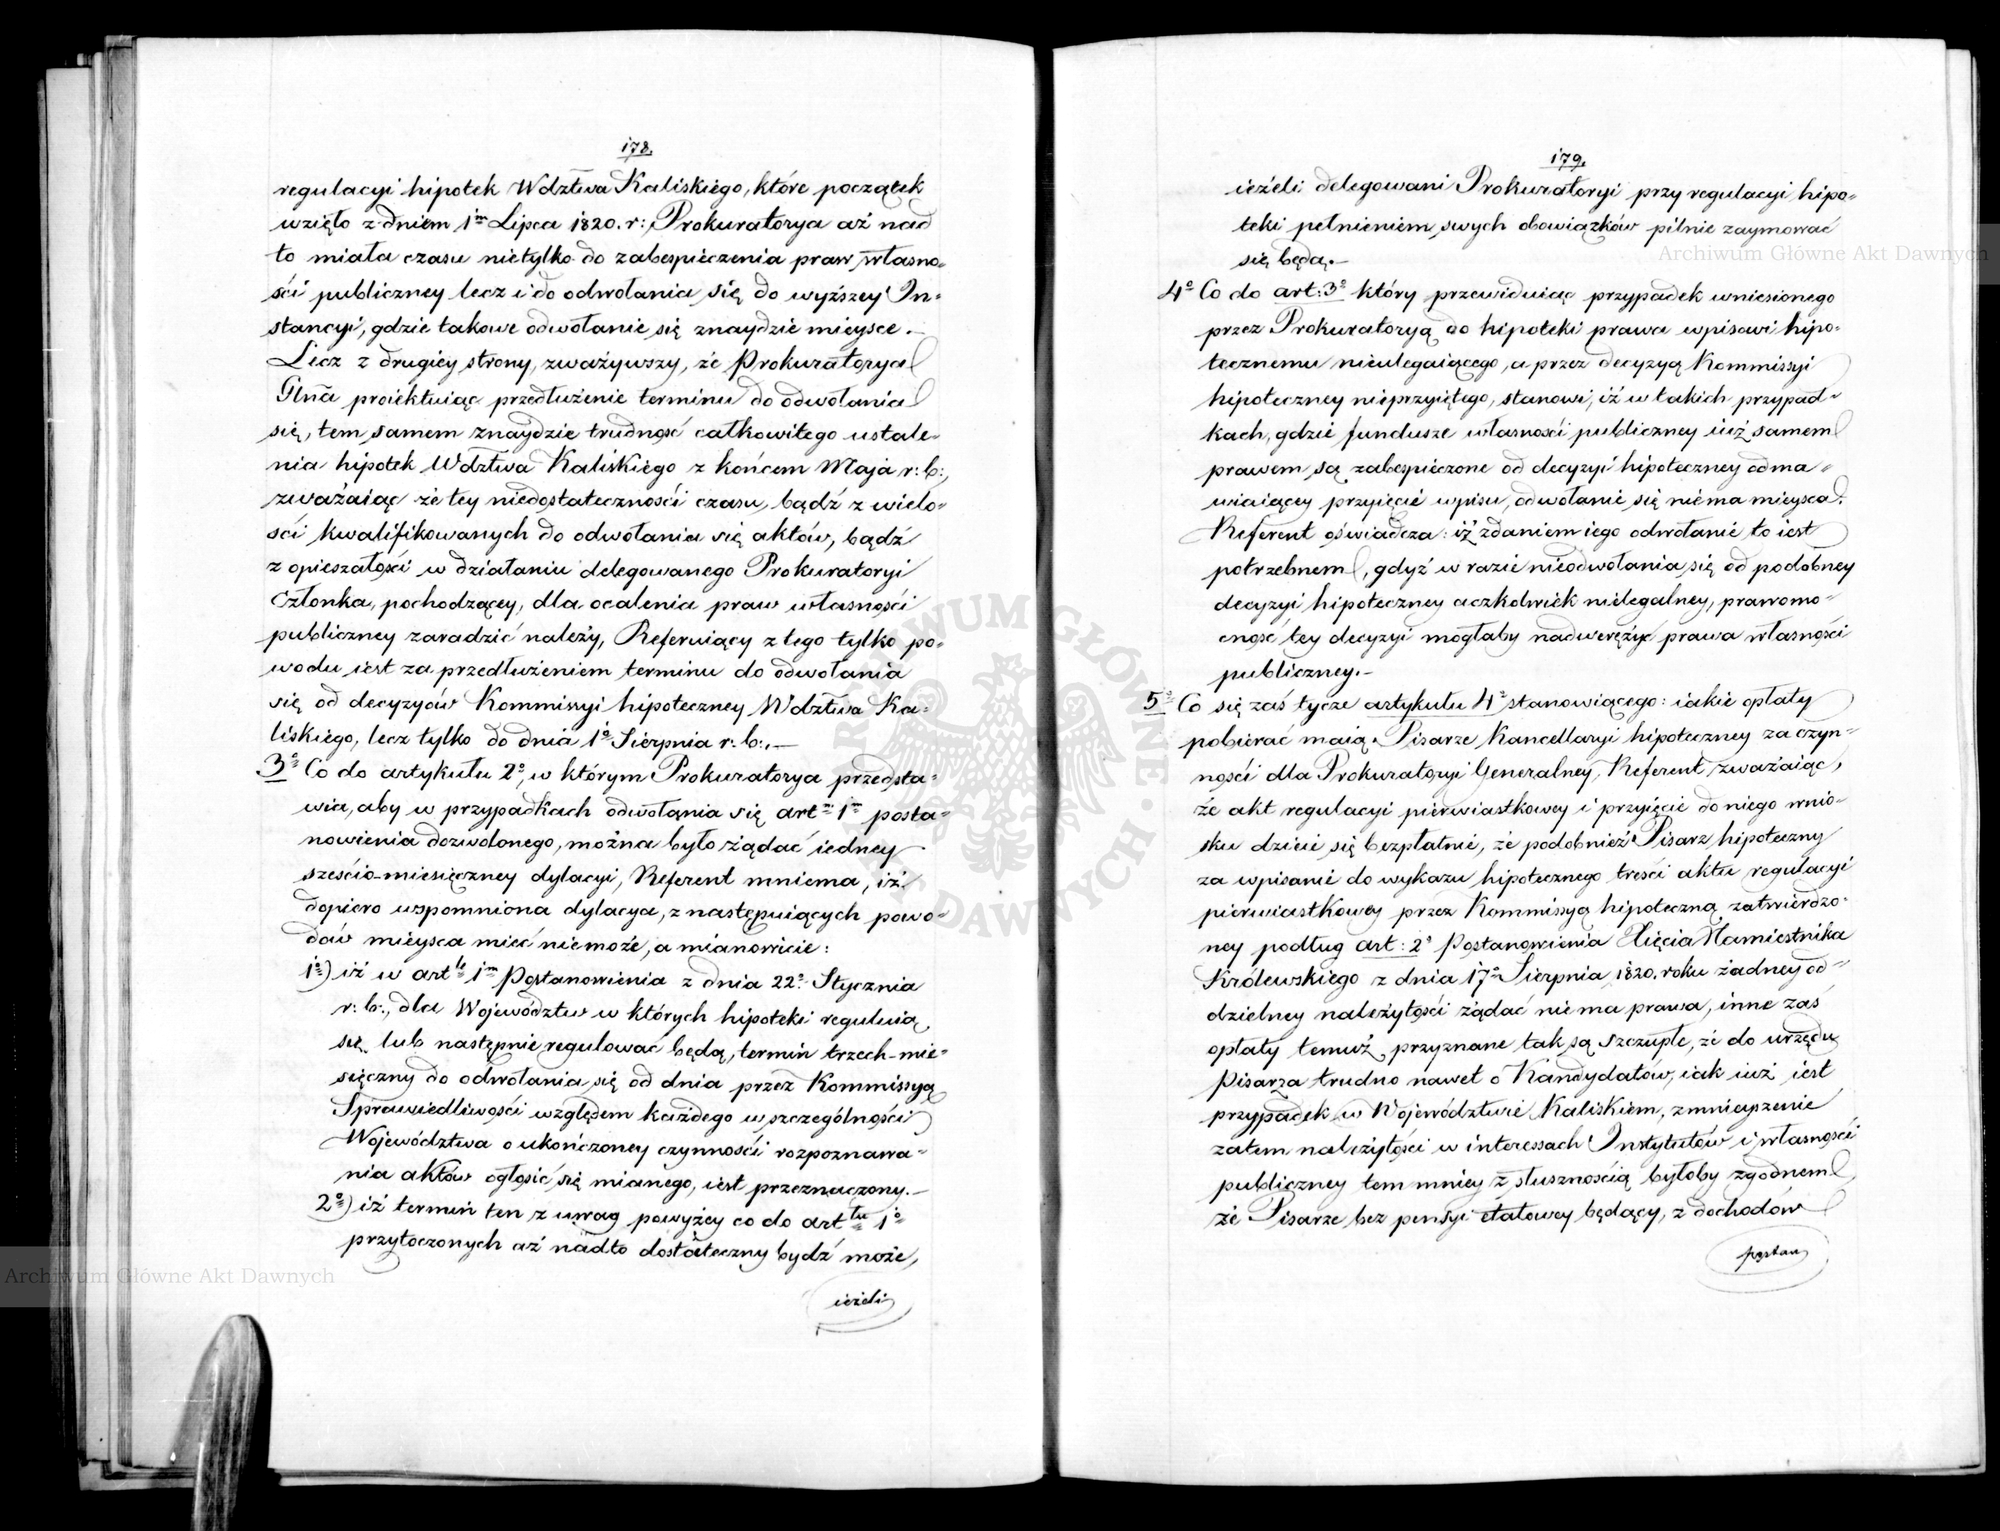 178.
regulacyi hipotek Wdztwa Kaliskiego, które początek
wzięło z dniem 1m Lipca 1820. r: Prokuratorya aż nad
to miała czasu nietylko do zabespieczenia praw własno=
ści publiczney lecz i do odwołania się do wyższey In=
stancyi, gdzie takowe odwołanie się znaydzie mieysce.—
Lecz z drugiey strony, zważywszy, że Prokuratorya
Glna proiektuiąc przedłużenie terminu do odwołania
się, tem samem znaydzie trudność całkowitego ustale=
nia hipotek Wdztwa Kaliskiego z końcem Maja r: b:,
zważaiąc że tey niedostateczności czasu, bądź z wielo=
ści kwalifikowanych do odwołania się aktów, bądź
z opieszałości w działaniu delegowanego Prokuratoryi
Członka, pochodzącey, dla ocalenia praw własności
publiczney zaradzić należy, Referuiący z tego tylko po=
wodu iest za przedłużeniem terminu do odwołania
się od decyzyów Kommissyi hipoteczney Wdztwa Ka=
liskiego, lecz tylko do dnia 1o Sierpnia r: b:,—
3o Co do artykułu 2o, w którym Prokuratorya przedsta=
wia, aby w przypadkach odwołania się artm 1m posta=
nowienia dozwolonego, można było żądać iedney
sześcio-miesięczney dylacyi, Referent mniema, iż
dopiero wspomniona dylacya, z następuiących powo=
dów mieysca mieć niemoże, a mianowicie:
1o) iż w artle 1m Postanowienia z dnia 22o Stycznia
r: b:, dla Województw w których hipoteki reguluią
się lub następnie regulować będą, termin trzech-mie=
sięczny do odwołania się od dnia przez Kommissyą
Sprawiedliwości względem każdego w szczególności
Województwa o ukończoney czynności rozpoznawa=
nia aktów ogłosić się mianego, iest przeznaczony.—
2o) iż termin ten z uwag powyżey co do arttu 1o
przytoczonych aż nadto dostateczny bydź może,
ieżeli
179.
ieżeli delegowani Prokuratoryi przy regulacyi hipo=
teki pełnieniem swych obowiązków pilnie zaymować
się będą.—
4o Co do art: 3o który przewiduiąc przypadek wniesionego
przez Prokuratoryą do hipoteki prawa wpisowi hipo=
tecznemu nieulegaiącego, a przez decyzyą Kommissyi
hipoteczney nieprzyiętego, stanowi, iż w takich przypad=
kach, gdzie fundusze własności publiczney iuż samem
prawem są zabespieczone od decyzyi hipoteczney odma=
wiaiącey przyięcie wpisu, odwołanie się niema mieysca.
Referent oświadcza: iż zdaniem iego odwołanie to iest
potrzebnem, gdyż w razie nieodwołania się od podobney
decyzyi hipoteczney aczkolwiek nielegalney, prawomo=
cność tey decyzyi mogłaby nadwerężyć prawa własności
publiczney.—
5o Co się zaś tycze artykułu 4o stanowiącego: iakie opłaty
pobierać maią Pisarze Kancellaryi hipoteczney za czyn=
ności dla Prokuratoryi Generalney, Referent zważaiąc,
że akt regulacyi pierwiastkowey i przyięcie do niego wnio=
sku dzieie się bezpłatnie, że podobnież Pisarz hipoteczny
za wpisanie do wykazu hipotecznego treści aktu regulacyi
pierwiastkowey przez Kommissyą hipoteczną zatwierdzo=
ney podług art: 2o Postanowienia Xięcia Namiestnika
Królewskiego z dnia 17o Sierpnia 1820. roku żadney od=
dzielney należytości żądać nie ma prawa, inne zaś
opłaty temuż przyznane tak są szczupłe, że do urzędu
Pisarza trudno nawet o Kandydatów, iak iuż iest
przypadek w Województwie Kaliskiem, zmnieyszenie
zatem należytości w interessach Instytutów i własności
publiczney tem mniey z słusznością byłoby zgodnem,
że Pisarze bez pensyi etatowey będący, z dochodów
postan
Archiwum Główne Akt Dawnych
Archiwum Główne Akt Dawnych
ARCHIWUM GŁÓWNE AKT DAWNYCH